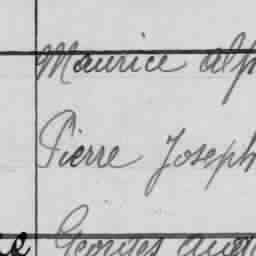 Maurice Alp
Pierre Joseph
Georges Aug